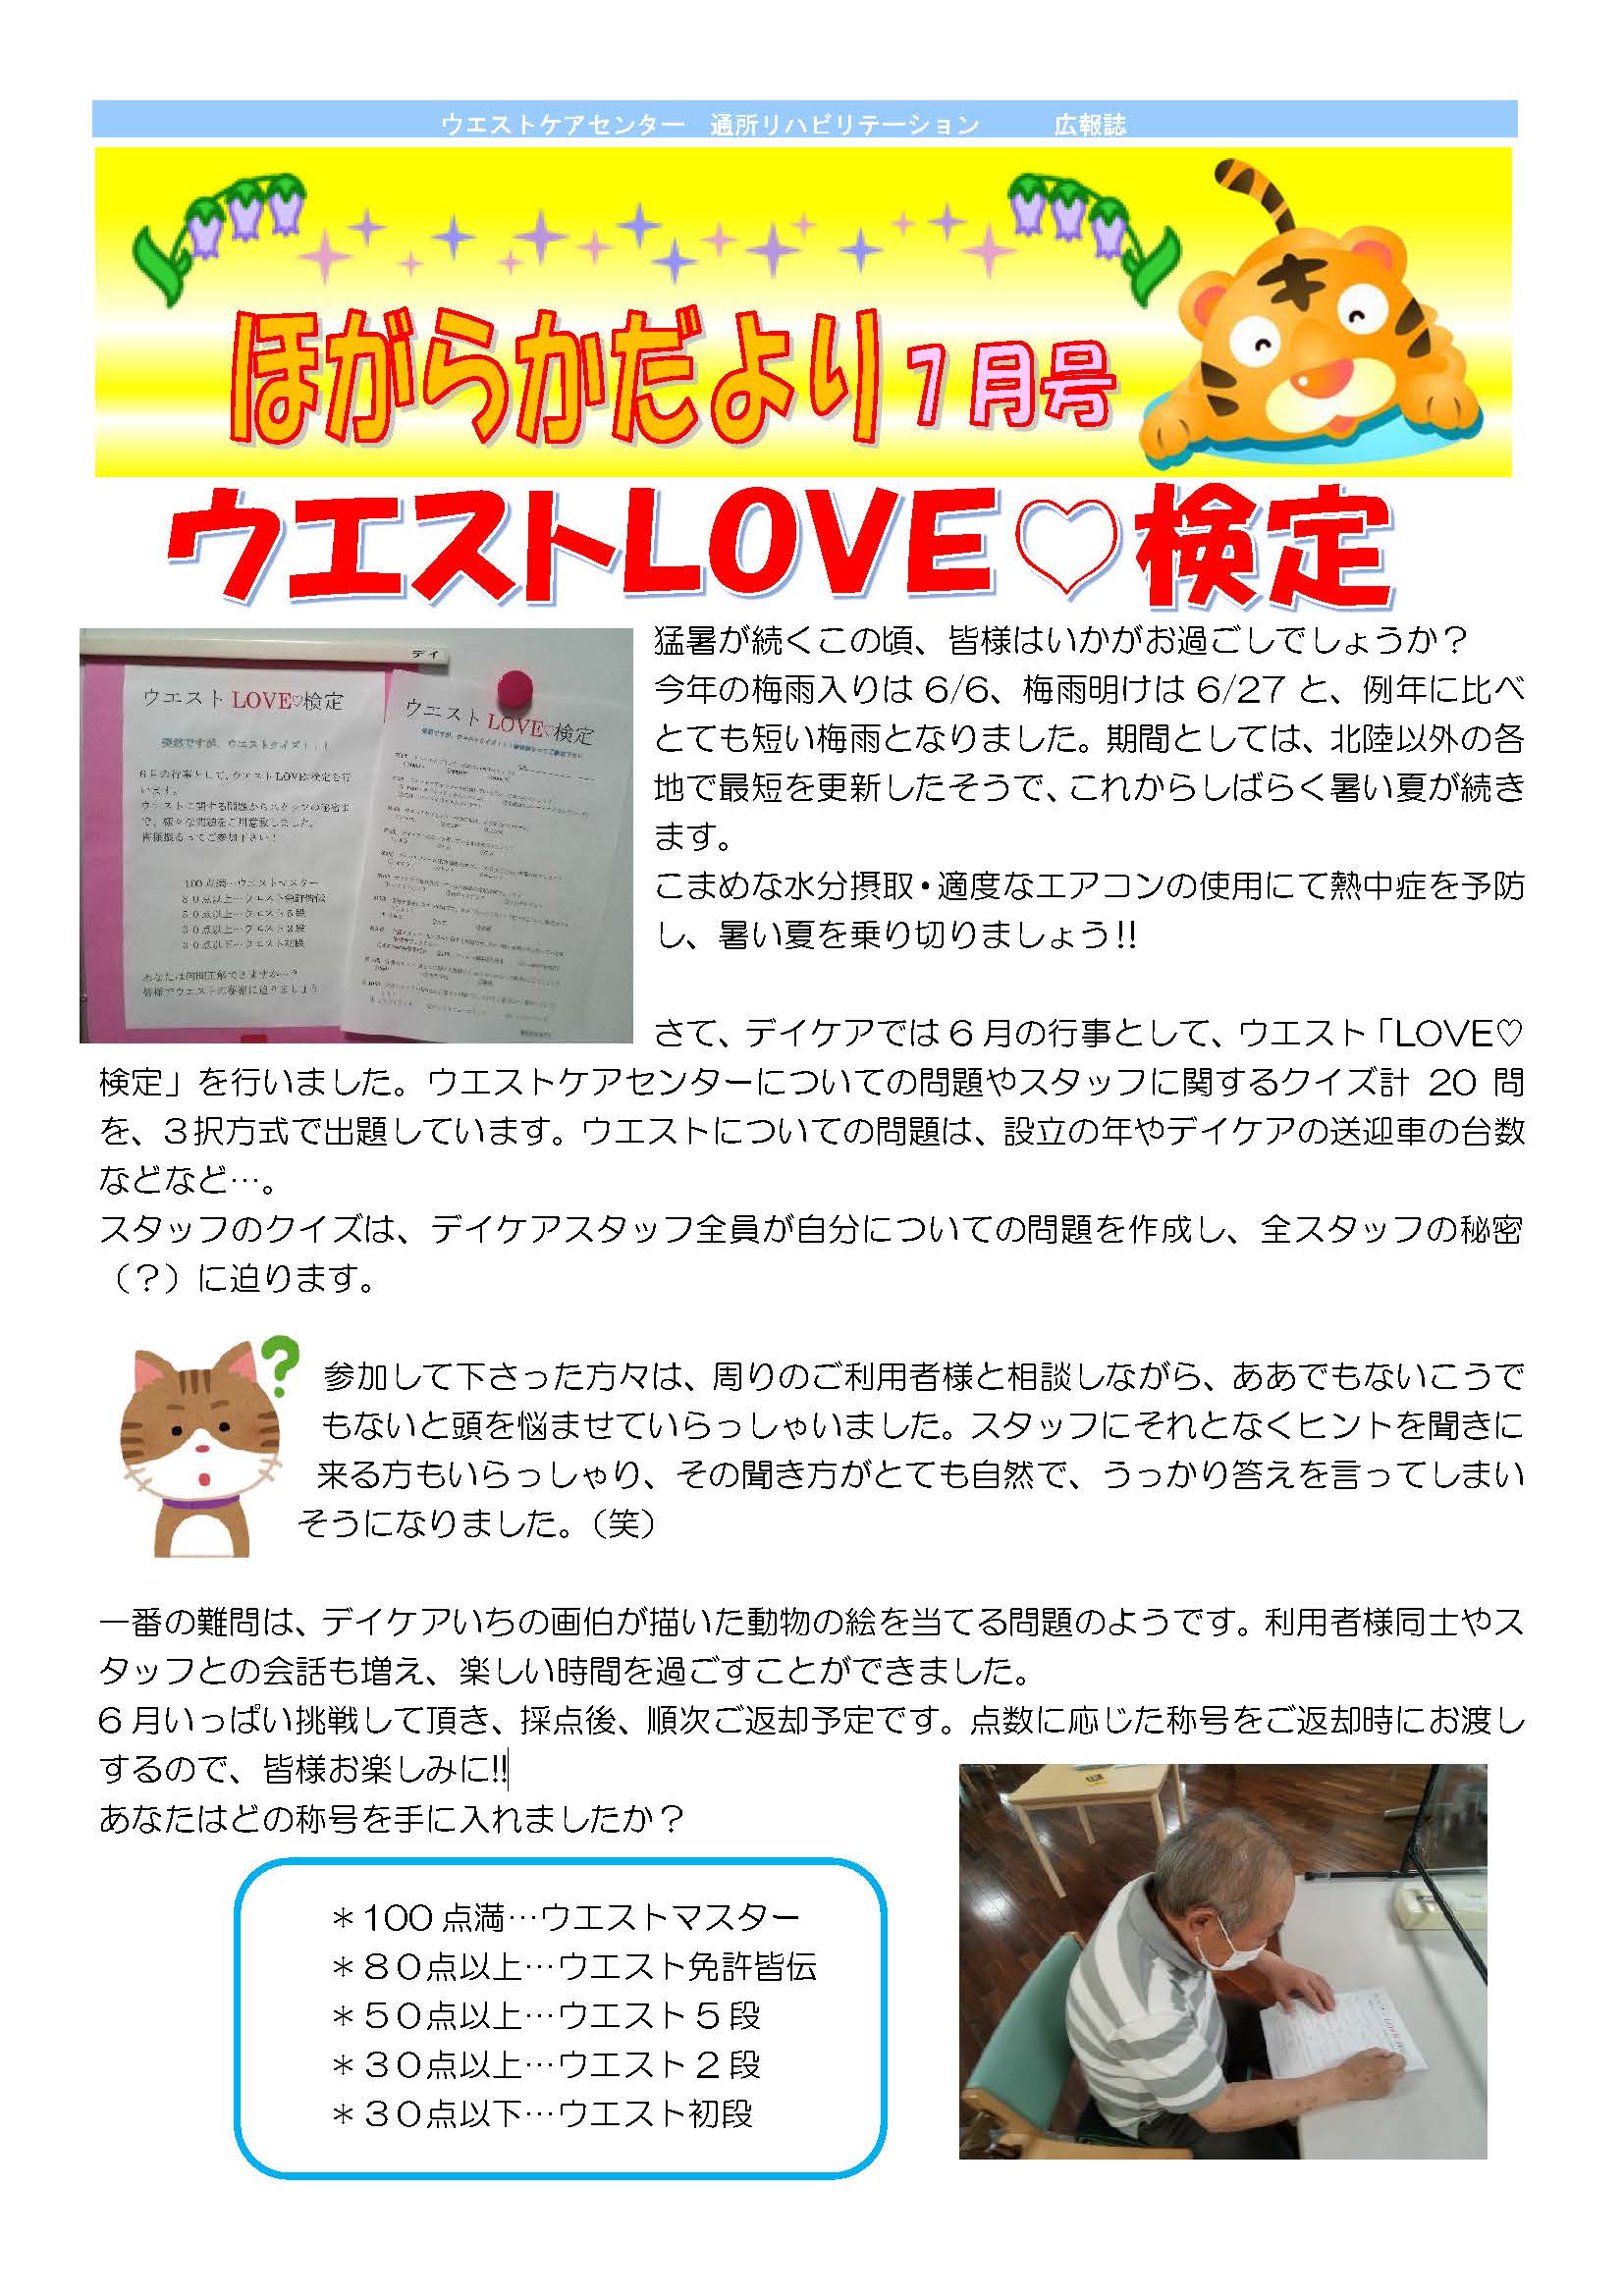 ウエストケアセンター　通所リハビリテーション　　　広報誌
ほがらかだより 7月号
ウエストLOVE♡検定
デイ
ウエスト LOVE♡検定
突然ですが、ウエストクイズ！！！
6月の行事として、ウエストLOVE検定を行
います。
ウエストに関する問題からスタッフの秘密ま
で、様々な問題をご用意致しました。
皆様振るってご参加下さい！
100点満…ウエストマスター
８０点以上…ウエスト免許皆伝
５０点以上…ウエスト５段
３０点以上…ウエスト２段
３０点以下…ウエスト初段
あなたは何問正解できますか…？
皆様でウエストの秘密に迫りましょう
ウエスト LOVE♡検定
猛暑が続くこの頃、皆様はいかがお過ごしでしょうか？
今年の梅雨入りは 6/6、梅雨明けは 6/27 と、例年に比べ
とても短い梅雨となりました。期間としては、北陸以外の各
地で最短を更新したそうで、これからしばらく暑い夏が続き
ます。
こまめな水分摂取・適度なエアコンの使用にて熱中症を予防
し、暑い夏を乗り切りましょう!!
さて、デイケアでは 6 月の行事として、ウエスト「LOVE♡
検定」を行いました。ウエストケアセンターについての問題やスタッフに関するクイズ計 20 問
を、３択方式で出題しています。ウエストについての問題は、設立の年やデイケアの送迎車の台数
などなど…。
スタッフのクイズは、デイケアスタッフ全員が自分についての問題を作成し、全スタッフの秘密
（？）に迫ります。
参加して下さった方々は、周りのご利用者様と相談しながら、ああでもないこうで
もないと頭を悩ませていらっしゃいました。スタッフにそれとなくヒントを聞きに
来る方もいらっしゃり、その聞き方がとても自然で、うっかり答えを言ってしまい
そうになりました。（笑）
一番の難問は、デイケアいちの画伯が描いた動物の絵を当てる問題のようです。利用者様同士やス
タッフとの会話も増え、楽しい時間を過ごすことができました。
6 月いっぱい挑戦して頂き、採点後、順次ご返却予定です。点数に応じた称号をご返却時にお渡し
するので、皆様お楽しみに!!
あなたはどの称号を手に入れましたか？
＊100 点満…ウエストマスター
＊８０点以上…ウエスト免許皆伝
＊５０点以上…ウエスト５段
＊３０点以上…ウエスト２段
＊３０点以下…ウエスト初段